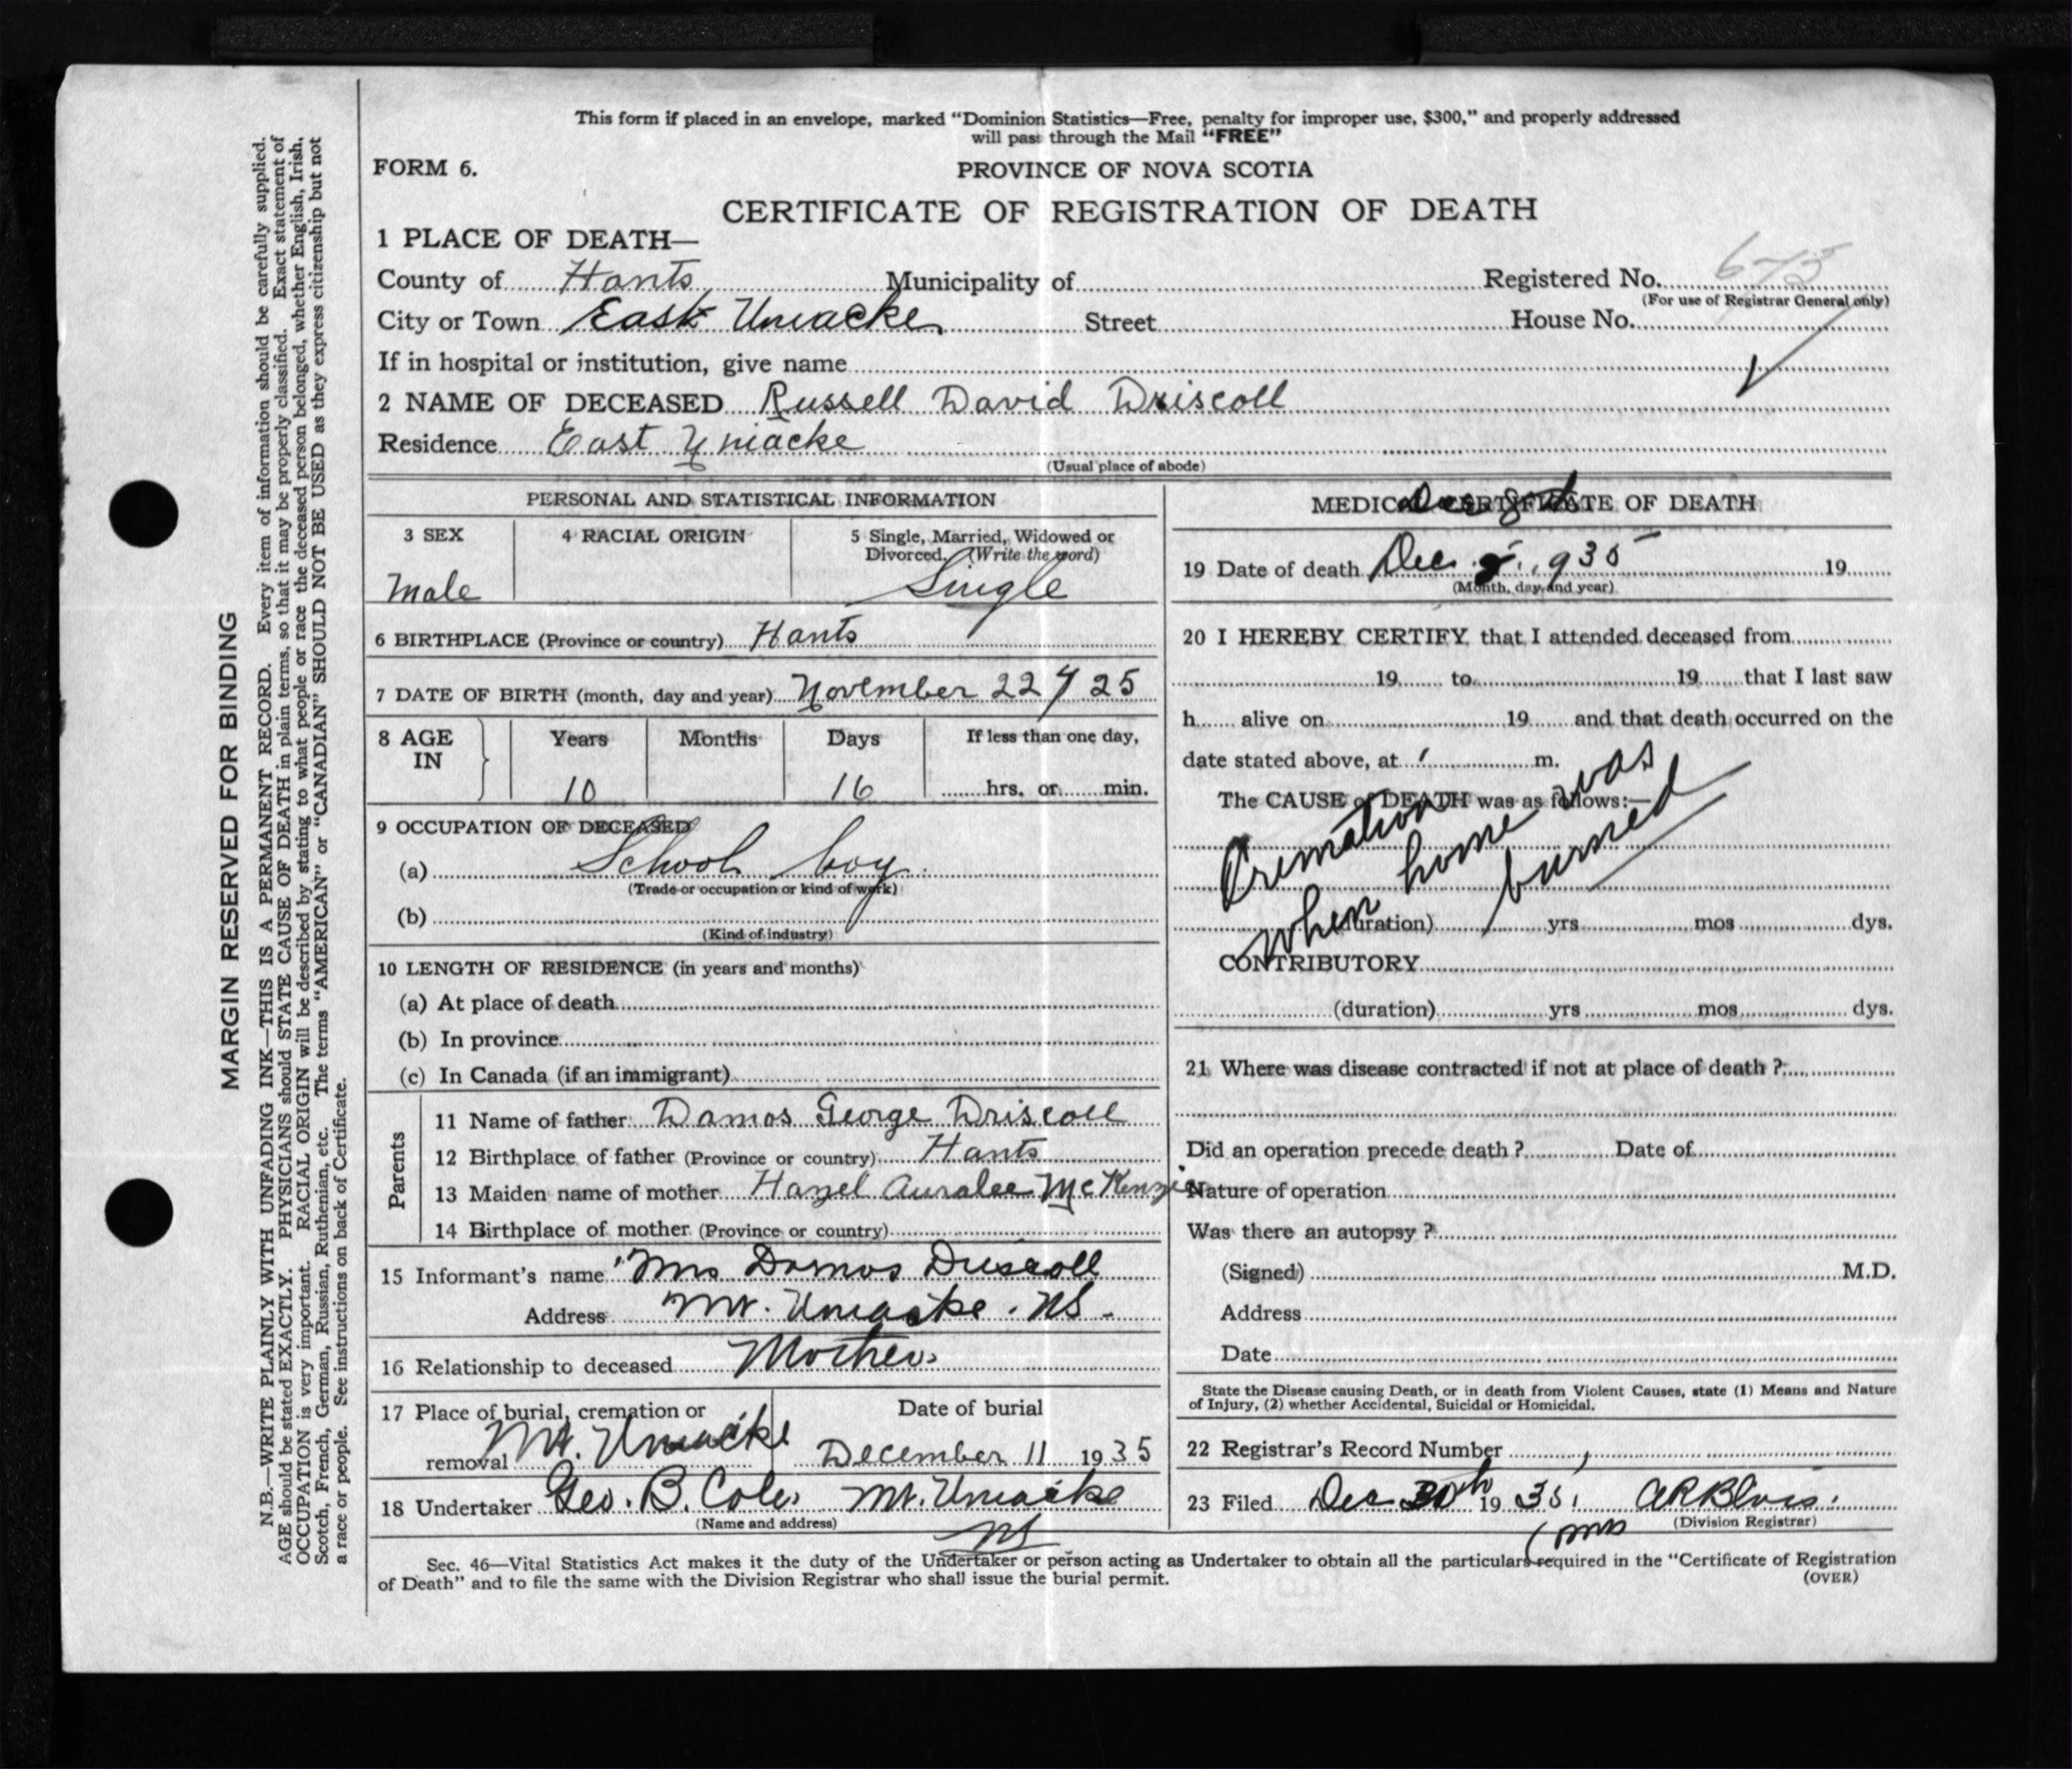 This form if placed in an envelope, marked “Dominion Statistics—Free, penalty for improper use, $300,” and properly addressed
will pass through the Mail “FREE”
FORM 6.
PROVINCE OF NOVA SCOTIA
CERTIFICATE OF REGISTRATION OF DEATH
1 PLACE OF DEATH—
County of Hants Municipality of Registered No. 675
(For use of Registrar General only)
City or Town East Uniacke Street House No.
If in hospital or institution, give name
2 NAME OF DECEASED Russell David Driscoll
Residence East Uniacke
(Usual place of abode)
PERSONAL AND STATISTICAL INFORMATION
3 SEX
Male
4 RACIAL ORIGIN
5 Single, Married, Widowed or
Divorced. (Write the word)
Single
6 BIRTHPLACE (Province or country) Hants
7 DATE OF BIRTH (month, day and year) November 22 / 25
8 AGE IN Years Months Days If less than one day,
10 16 hrs. or min.
9 OCCUPATION OF DECEASED
(a) School boy
(Trade or occupation or kind of work)
(b)
(Kind of industry)
10 LENGTH OF RESIDENCE (in years and months)
(a) At place of death
(b) In province
(c) In Canada (if an immigrant)
Parents
11 Name of father Damos George Driscoll
12 Birthplace of father (Province or country) Hants
13 Maiden name of mother Hazel Auralee McKenzie
14 Birthplace of mother (Province or country)
15 Informant's name Mrs Damos Driscoll
Address Mt. Uniacke. NS.
16 Relationship to deceased Mother
17 Place of burial, cremation or
removal Mt. Uniacke
Date of burial
December 11 1935
18 Undertaker Geo. B. Cole Mt. Uniacke
(Name and address)
NS
MEDICAL CERTIFICATE OF DEATH
Dec 8th
19 Date of death Dec. 8. 1935 19
(Month, day and year)
20 I HEREBY CERTIFY that I attended deceased from
19 to 19 that I last saw
h alive on 19 and that death occurred on the
date stated above, at m.
The CAUSE of DEATH was as follows:—
Cremation
when home was
burned
(duration) yrs mos dys.
CONTRIBUTORY
(duration) yrs mos dys.
21 Where was disease contracted if not at place of death ?
Did an operation precede death ? Date of
Nature of operation
Was there an autopsy ?
(Signed) M.D.
Address
Date
State the Disease causing Death, or in death from Violent Causes, state (1) Means and Nature
of Injury, (2) whether Accidental, Suicidal or Homicidal.
22 Registrar's Record Number
23 Filed Dec 30th 1935
(Division Registrar)
(Mrs
Sec. 46—Vital Statistics Act makes it the duty of the Undertaker or person acting as Undertaker to obtain all the particulars required in the “Certificate of Registration
of Death” and to file the same with the Division Registrar who shall issue the burial permit.
(OVER)
MARGIN RESERVED FOR BINDING
N.B.—WRITE PLAINLY WITH UNFADING INK—THIS IS A PERMANENT RECORD. Every item of information should be carefully supplied.
AGE should be stated EXACTLY. PHYSICIANS should STATE CAUSE OF DEATH in plain terms, so that it may be properly classified. Exact statement of
OCCUPATION is very important. RACIAL ORIGIN will be described by stating to what people or race the deceased person belonged, whether English, Irish,
Scotch, French, German, Russian, Ruthenian, etc. The terms “AMERICAN” or “CANADIAN” SHOULD NOT BE USED as they express citizenship but not
a race or people. See instructions on back of Certificate.